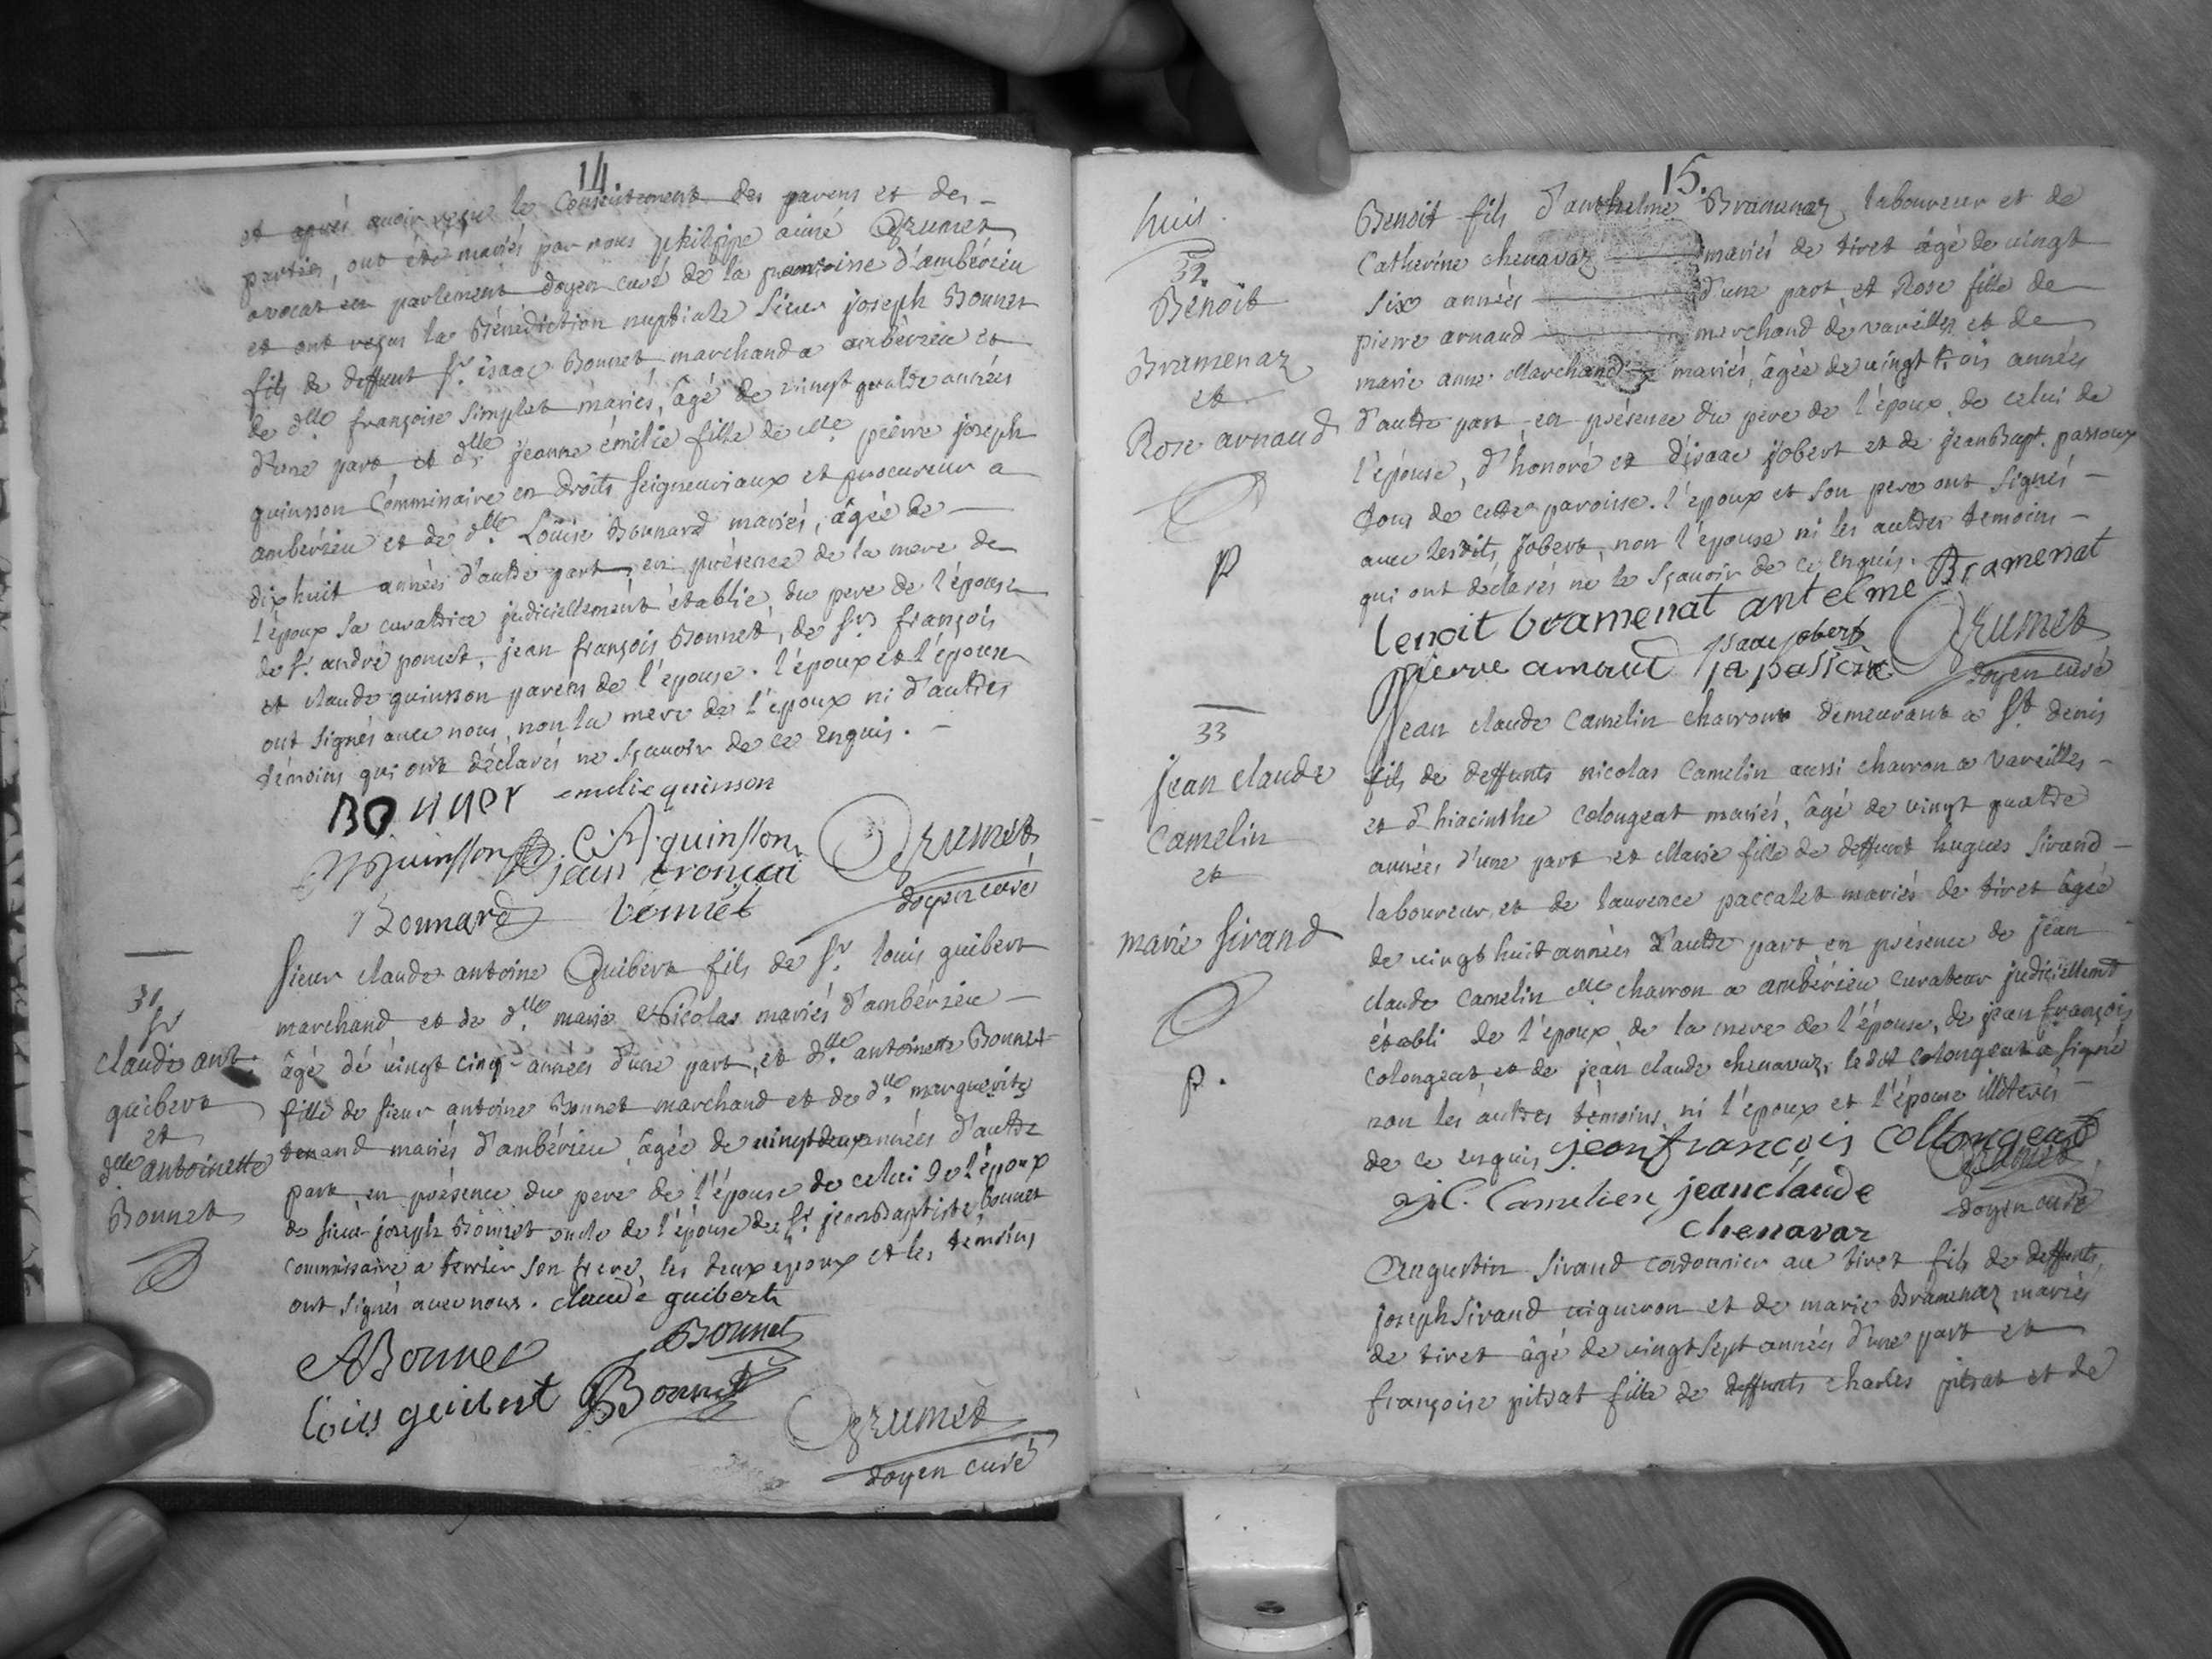 14.
et après avoir reçu le consentement des parens et des -
parties, ont été mariés par nous philippe aimé Grumet
avocat en parlement doyen curé de la paroisse d'ambérieu
et ont reçus la Bénédiction nuptiale Sieur joseph Bonnet
fils de deffunt Sr. isaac Bonnet marchand a ambérieu et
de dlle françoise Simplet mariés, âgé de vingt quatre années
d'une part et dlle jeanne émilie fille de Me pierre joseph
quinson Commissaire en droits Seigneuriaux et procureur a
ambérieu et de dlle Louise Bonnard mariés, âgée de -
dixhuit années d'autre part, en présence de la mere de
l'époux sa curatrice judiciellement établie, du pere de l'épouse
de Sr. andré poncet, jean françois Bonnet, de Srs françois
et claude quinson parens de l'épouse. l'époux et l'épouse
ont signés avec nous, non la mere de l'époux ni d'autres
témoins qui ont déclarés ne sçavoir de ce enquis. -
BONNET emilie quinson
quinsson C. f. quinsson
jean françoi Grumet
Bonnard bonnet doyen curé
31
Sr
claude ant.
guibert
et
dlle antoinette
Bonnet
Sieur claude antoine Guibert fils de Sr. louis guibert
marchand et de dlle marie Nicolas mariés d'ambérieu -
âgé de vingt cinq années d'une part, et dlle antoinette Bonnet
fille de sieur antoine Bonnet marchand et de dlle marguerite
tenand mariés d'ambérieu, âgée de vingtdeux années d'autre
part, en présence du pere de l'épouse de celui de l'époux
de sieur joseph Bonnet oncle de l'épouse de Sr. jeanBaptiste Bonnet
commissaire a terrier son frere, les deux epoux et les témoins
ont signés avec nous. claude guibert
ABonnet Bonnet
loius guibert Bonnet
Grumet
doyen curé
15.
huis.
32.
Benoit
Bramenaz
et
Rose arnaud
p
Benoit fils d'anthelme Bramenaz laboureur et de
Catherine chenavaz mariés de tiret âgé de vingt
six années d'une part, et Rose fille de
pierre arnaud marchand de vareilles et de
marie anne Marchand mariés, âgée de vingt trois années
d'autre part en présence du pere de l'époux, de celui de
l'épouse, d'honoré et d'isaac jobert et de jeanBapt. passoux
tous de cette paroisse. l'époux et son pere ont signés -
avec lesdits jobert, non l'épouse ni les autres temoins -
qui ont déclarés ne le sçavoir de ce enquis.
benoit bramenat antelme Bramenat
isaac jobert Grumet
pierre arnaud doyen curé
33
jean claude
Camelin
et
marie Sirand
p.
Jean claude Camelin charron demeurant a St. denis
fils de deffunts nicolas Camelin aussi charron a Vareilles -
et d'hiacinthe Colongeat mariés, âgé de vingt quatre
années d'une part et Marie fille de deffunt hugues Sirand -
laboureur, et de laurence paccalet mariés de tiret âgée
de vingt huit années d'autre part en présence de jean
claude Camelin Me charron a ambérieu curateur judiciellemt
établi de l'époux, de la mere de l'épouse, de jean françois
Colongeat, et de jean claude chenavaz, ledit colongeat a signé
non les autres témoins, ni l'époux et l'épouse illiterés -
de ce enquis jeanfrancois collongeat
Grumet
j.C. Camelien jeanclaude doyen curé
chenavaz
Augustin Sirand cordonnier au tiret fils de deffunts
joseph Sirand vigneron et de marie Bramenaz mariés
de tiret âgé de vingt sept années d'une part et
françoise pitrat fille de deffunts charles pitrat et de